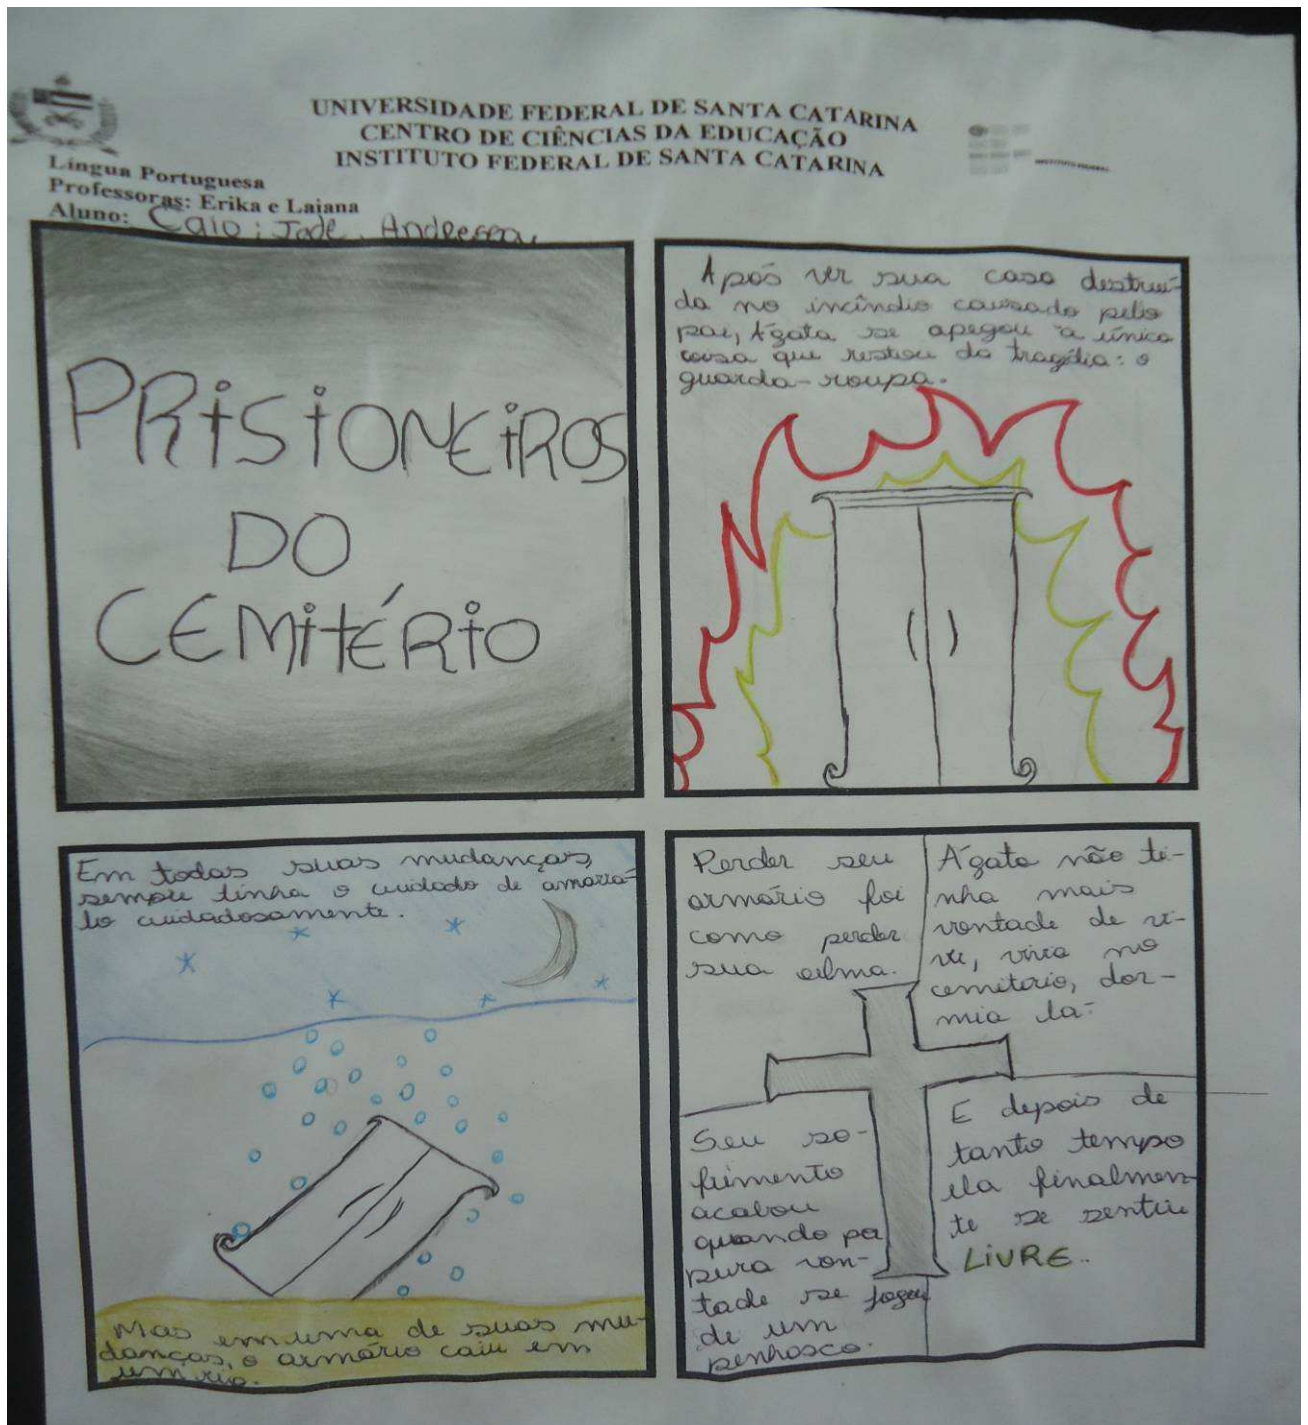 UNIVERSIDADE FEDERAL DE SANTA CATARINA
CENTRO DE CIÊNCIAS DA EDUCAÇÃO
INSTITUTO FEDERAL DE SANTA CATARINA
Língua Portuguesa
Professoras: Erika e Laiana
Aluno: Caio; Jade, Andressa
PRISIONEIROS
DO
CEMITÉRIO
Após ver sua casa destruí-
da no incêndio causado pelo
pai, Ágata se apegou a única
coisa que restou da tragédia: o
guarda-roupa.
Em todas suas mudanças,
sempre tinha o cuidado de amarrá-
lo cuidadosamente.
Mas em uma de suas mu-
danças, o armário caiu em
um rio.
Perder seu
armário foi
como perder
sua alma.
Ágata não ti-
nha mais
vontade de vi-
ver, vivia no
cemitério, dor-
mia lá.
Seu so-
frimento
acabou
quando por
pura von-
tade se jogou
de um
penhasco.
E depois de
tanto tempo
ela finalmen-
te se sentiu
LIVRE.